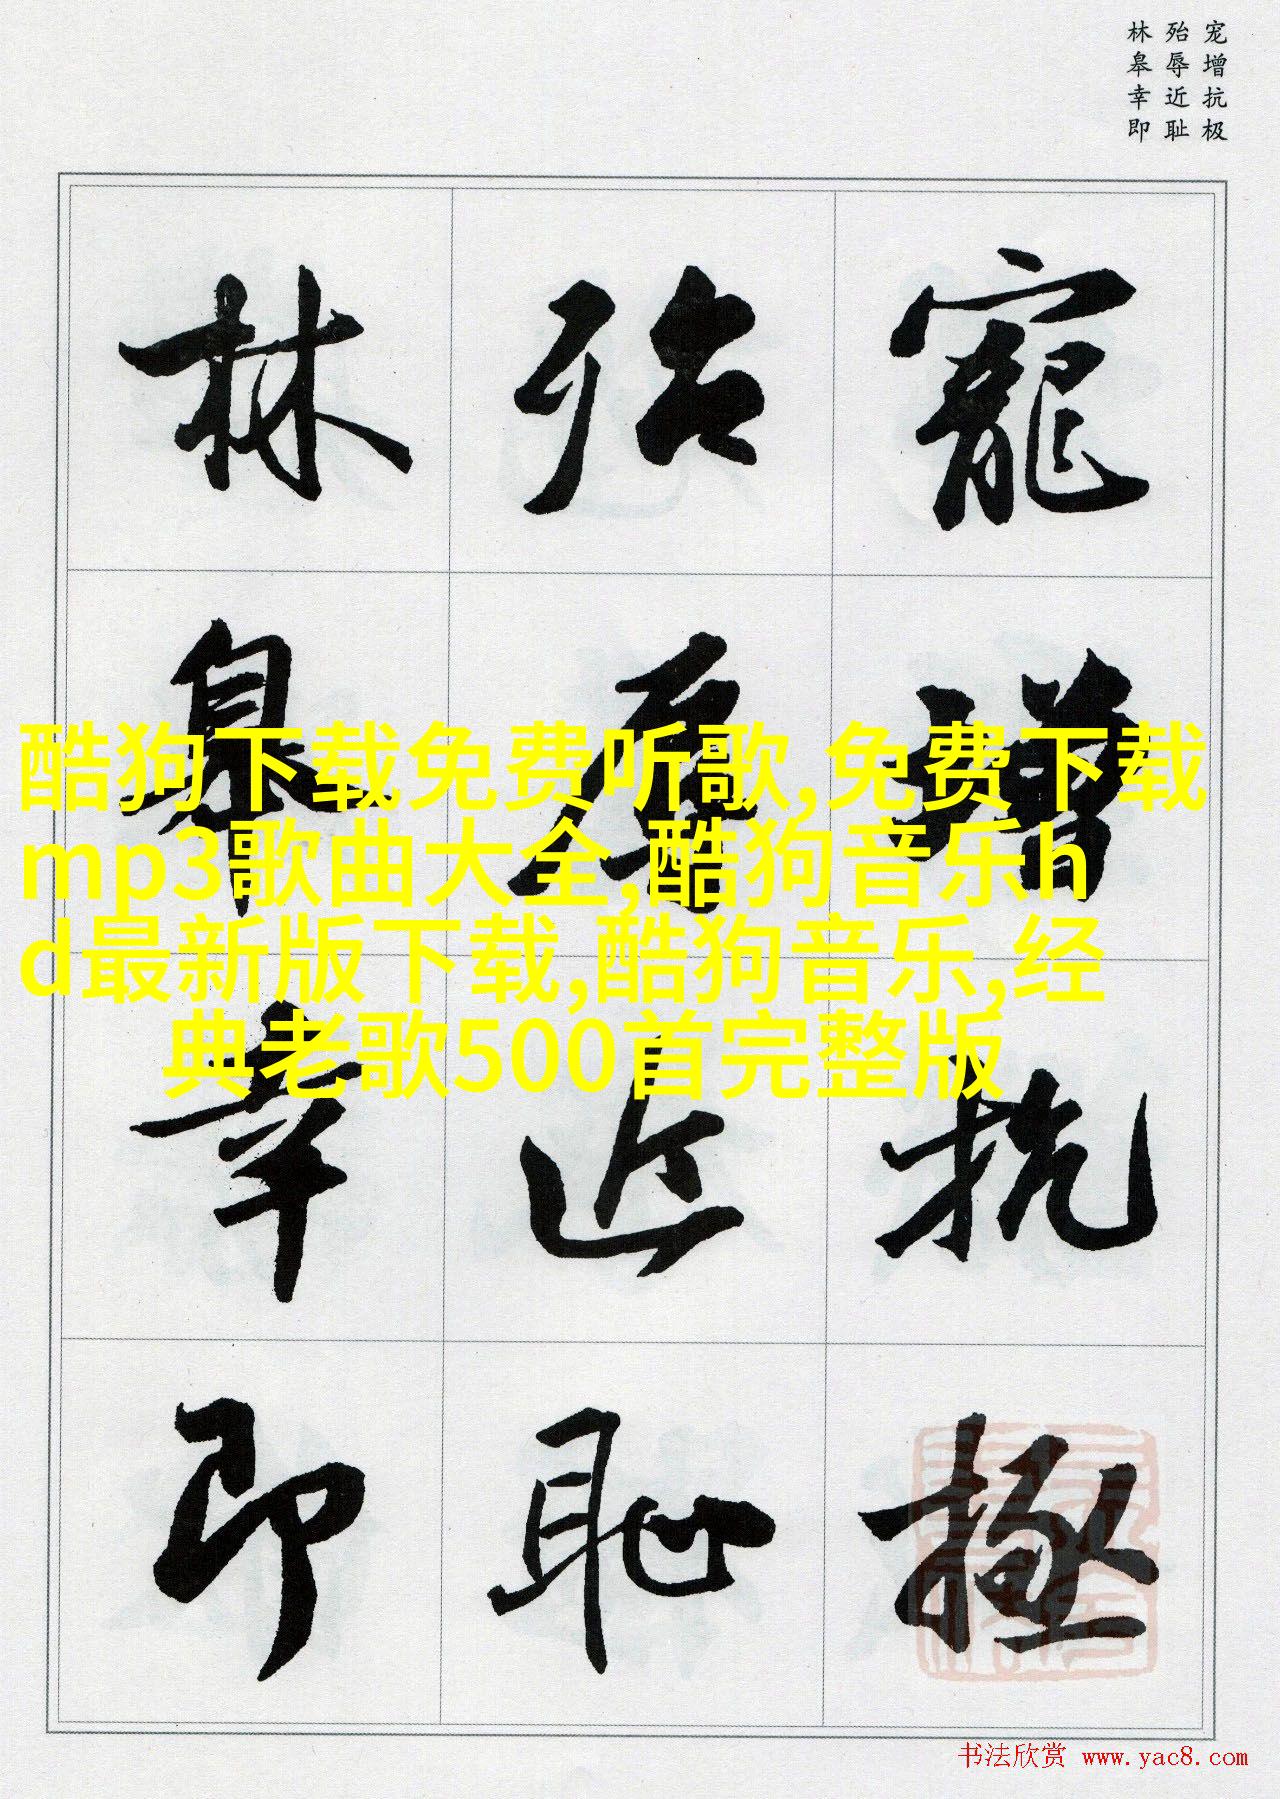 宠增抗极
殆辱近耻
林皋幸即
寵增抗極
殆辱近恥
林皋幸即
酷狗下载免费听歌,免费下载
mp3歌曲大全,酷狗音乐h
d最新版下载,酷狗音乐,经
典老歌500首完整版
书法欣赏 www.yac8.com